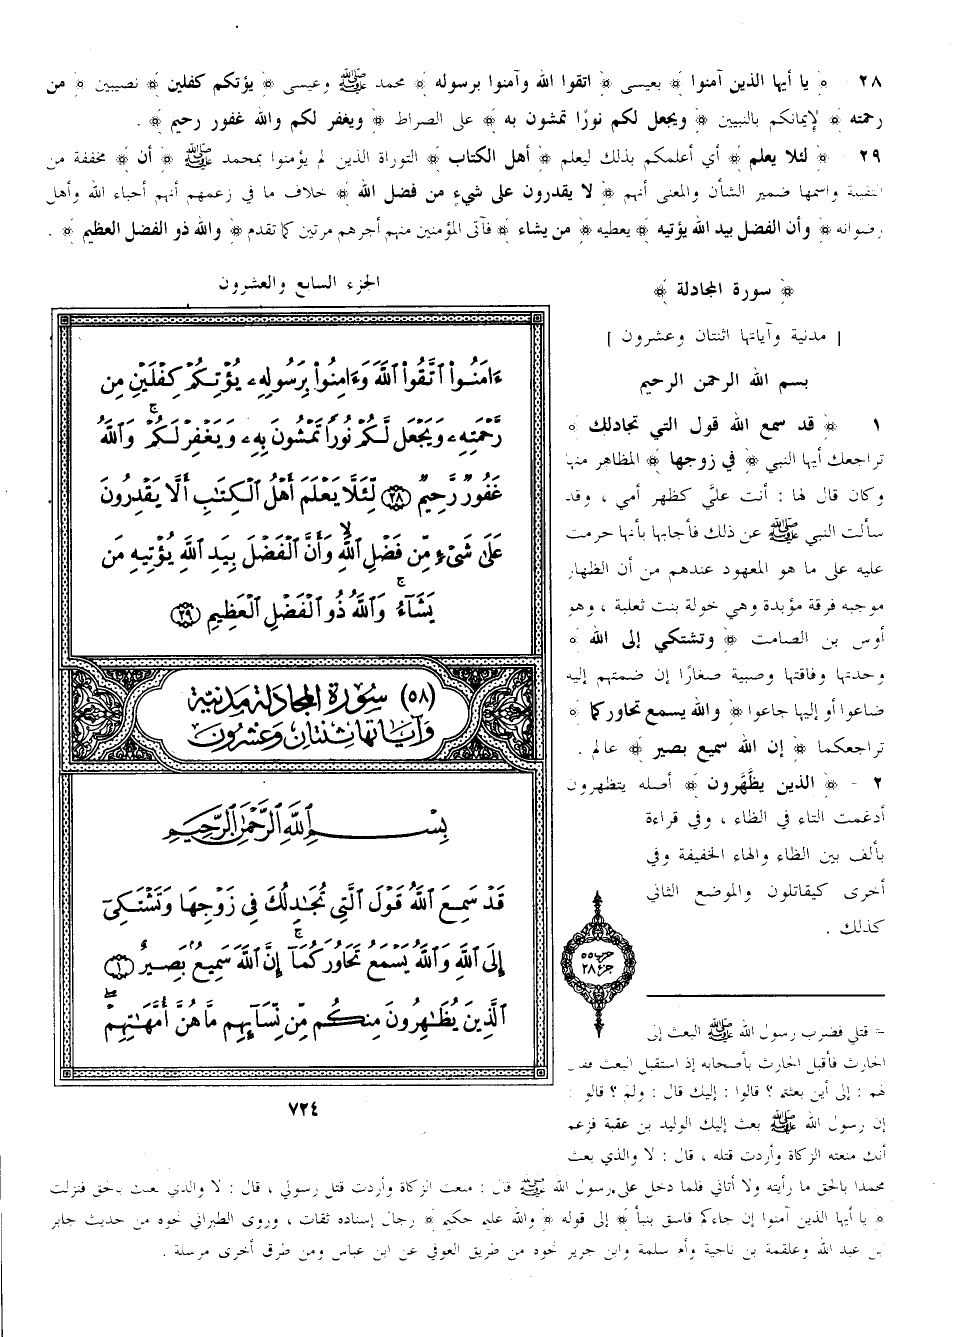 ٢٨ ﴿ يا أيها الذين آمنوا ﴾ بعيسى ﴿ اتقوا الله وآمنوا برسوله ﴾ محمد ﷺ وعيسى ﴿ يؤتكم كفلين ﴾ نصيبين ﴿ من
رحمته ﴾ لإيمانكم بالنبيين ﴿ ويجعل لكم نورًا تمشون به ﴾ على الصراط ﴿ ويغفر لكم والله غفور رحيم ﴾ .
٢٩ - ﴿ لئلا يعلم ﴾ أي أعلمكم بذلك ليعلم ﴿ أهل الكتاب ﴾ التوراة الذين لم يؤمنوا بمحمد ﷺ ﴿ أن ﴾ مخففة من
الثقيلة واسمها ضمير الشأن والمعنى أنهم ﴿ لا يقدرون على شيءٍ من فضل الله ﴾ خلاف ما في زعمهم أنهم أحباء الله وأهل
رضوانه ﴿ وأن الفضل بيد الله يؤتيه ﴾ يعطيه ﴿ من يشاء ﴾ فآتى المؤمنين منهم أجرهم مرتين كما تقدم ﴿ والله ذو الفضل العظيم ﴾ .
﴿ سورة المجادلة ﴾
[ مدنية وآياتها اثنتان وعشرون ]
بسم الله الرحمن الرحيم
١ ﴿ قد سمع الله قول التي تجادلك ﴾
تراجعك أيها النبي ﴿ في زوجها ﴾ المظاهر منها
وكان قال لها : أنت عليَّ كظهر أمي ، وقد
سألت النبي ﷺ عن ذلك فأجابها بأنها حرمت
عليه على ما هو المعهود عندهم من أن الظهار
موجبه فرقة مؤبدة وهي خولة بنت ثعلبة ، وهو
أوس بن الصامت ﴿ وتشتكي إلى الله ﴾
وحدتها وفاقتها وصبية صغارًا إن ضمتهم إليه
ضاعوا أو إليها جاعوا ﴿ والله يسمع تحاوركما ﴾
تراجعكما ﴿ إن الله سميع بصير ﴾ عالم .
٢ - ﴿ الذين يظَّهَّرون ﴾ أصله يتظهرون
أدغمت التاء في الظاء ، وفي قراءة
بألف بين الظاء والهاء الخفيفة وفي
أخرى كيقاتلون والموضع الثاني
كذلك .
الجزء السابع والعشرون
ءَامَنُوا۟ ٱتَّقُوا۟ ٱللَّهَ وَءَامِنُوا۟ بِرَسُولِهِۦ يُؤْتِكُمْ كِفْلَيْنِ مِن
رَّحْمَتِهِۦ وَيَجْعَل لَّكُمْ نُورًا تَمْشُونَ بِهِۦ وَيَغْفِرْ لَكُمْ ۚ وَٱللَّهُ
غَفُورٌ رَّحِيمٌ ﴿٢٨﴾ لِّئَلَّا يَعْلَمَ أَهْلُ ٱلْكِتَـٰبِ أَلَّا يَقْدِرُونَ
عَلَىٰ شَىْءٍ مِّن فَضْلِ ٱللَّهِ ۙ وَأَنَّ ٱلْفَضْلَ بِيَدِ ٱللَّهِ يُؤْتِيهِ مَن
يَشَآءُ ۚ وَٱللَّهُ ذُو ٱلْفَضْلِ ٱلْعَظِيمِ ﴿٢٩﴾
(٥٨) سورة المجادلة مدنية
وآياتها ثنتان وعشرون
بِسْمِ ٱللَّهِ ٱلرَّحْمَـٰنِ ٱلرَّحِيمِ
قَدْ سَمِعَ ٱللَّهُ قَوْلَ ٱلَّتِى تُجَـٰدِلُكَ فِى زَوْجِهَا وَتَشْتَكِىٓ
إِلَى ٱللَّهِ وَٱللَّهُ يَسْمَعُ تَحَاوُرَكُمَآ ۚ إِنَّ ٱللَّهَ سَمِيعٌۢ بَصِيرٌ ﴿١﴾
ٱلَّذِينَ يُظَـٰهِرُونَ مِنكُم مِّن نِّسَآئِهِم مَّا هُنَّ أُمَّهَـٰتِهِمْ ۖ
حزب ٥٥
جزء ٢٨
٧٢٤
= قتلي فضرب رسول الله ﷺ البعث إلى
الحارث فأقبل الحارث بأصحابه إذ استقبل البعث فقال
لهم : إلى أين بعثتم ؟ قالوا : إليك قال : ولم ؟ قالوا :
إن رسول الله ﷺ بعث إليك الوليد بن عقبة فزعم
أنك منعته الزكاة وأردت قتله ، قال : لا والذي بعث
محمدا بالحق ما رأيته ولا أتاني فلما دخل على رسول الله ﷺ قال : منعت الزكاة وأردت قتل رسولي ، قال : لا والذي بعثك بالحق فنزلت
﴿ يا أيها الذين آمنوا إن جاءكم فاسق بنبأ ﴾ إلى قوله ﴿ والله عليم حكيم ﴾ رجال إسناده ثقات ، وروى الطبراني نحوه من حديث جابر
ابن عبد الله وعلقمة بن ناجية وأم سلمة وابن جرير نحوه من طريق العوفي عن ابن عباس ومن طرق أخرى مرسلة .